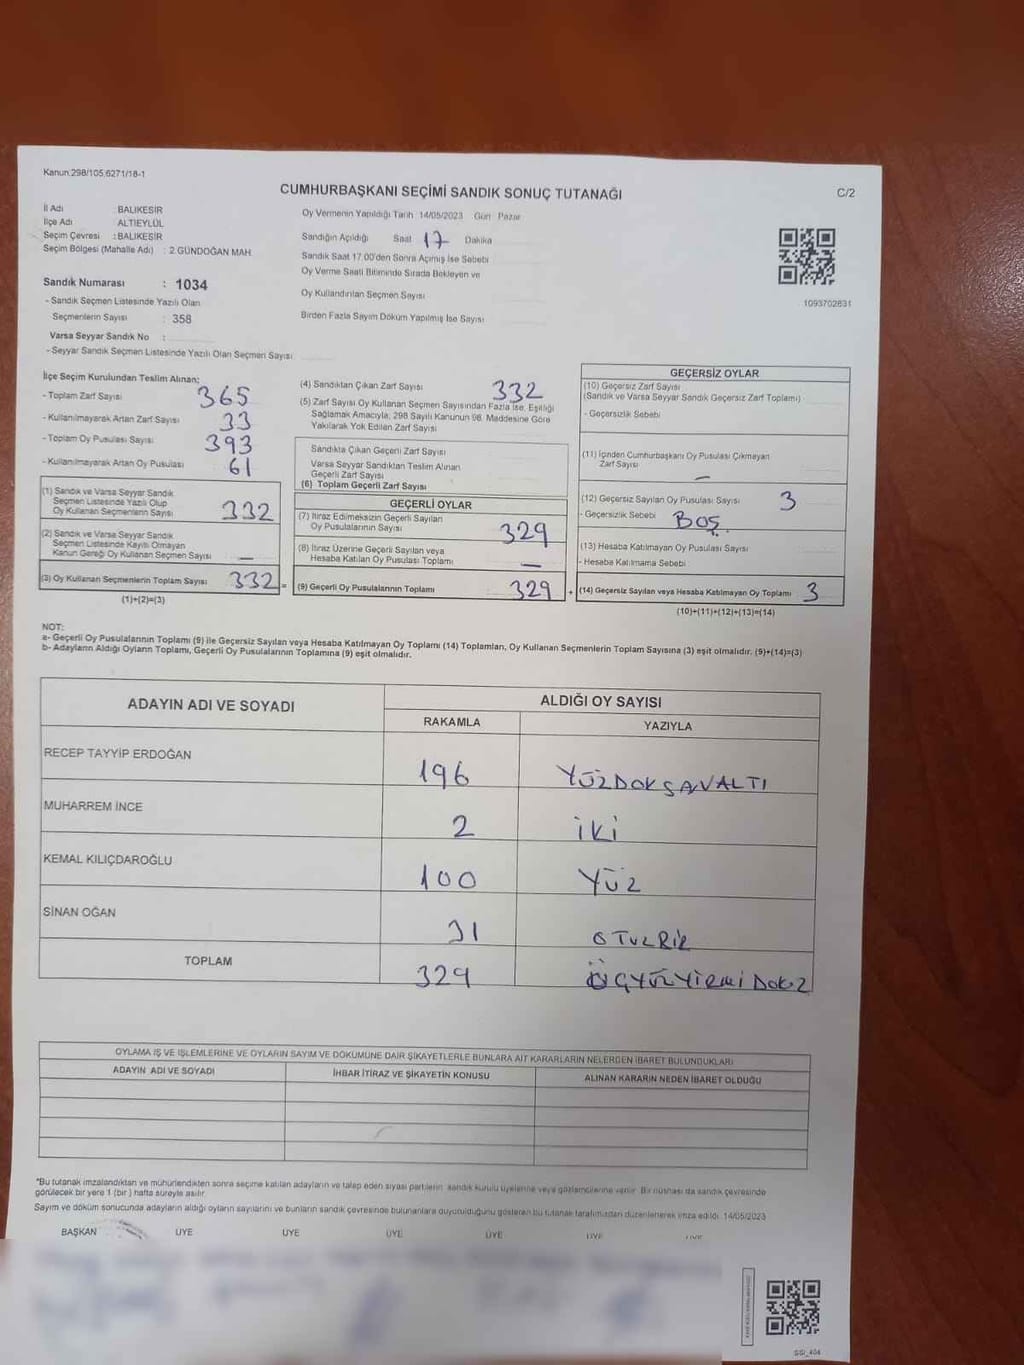 Kanun:298/105,6271/18-1
CUMHURBAŞKANI SEÇİMİ SANDIK SONUÇ TUTANAĞI
C/2
İl Adı BALIKESİR
İlçe Adı ALTIEYLÜL
Seçim Çevresi : BALIKESİR
Seçim Bölgesi (Mahalle Adı) : 2.GÜNDOĞAN MAH.
Oy Vermenin Yapıldığı Tarih 14/05/2023 Gün Pazar
Sandığın Açıldığı Saat 17 Dakika
Sandık Saat 17.00'den Sonra Açımış İse Sebebi
Oy Verme Saati Bitiminde Sırada Bekleyen ve
Oy Kullandırılan Seçmen Sayısı
Birden Fazla Sayım Döküm Yapılmış İse Sayısı
1093702831
Sandık Numarası : 1034
- Sandık Seçmen Listesinde Yazılı Olan
Seçmenlerin Sayısı : 358
Varsa Seyyar Sandık No :
- Seyyar Sandık Seçmen Listesinde Yazılı Olan Seçmen Sayısı
İlçe Seçim Kurulundan Teslim Alınan;
- Toplam Zarf Sayısı 365
- Kullanılmayarak Artan Zarf Sayısı 33
- Toplam Oy Pusulası Sayısı 393
- Kullanılmayarak Artan Oy Pusulası 61
(1) Sandık ve Varsa Seyyar Sandık
Seçmen Listesinde Yazılı Olup
Oy Kullanan Seçmenlerin Sayısı 332
(2) Sandık ve Varsa Seyyar Sandık
Seçmen Listesinde Kayıtlı Olmayan
Kanun Gereği Oy Kullanan Seçmen Sayısı —
(3) Oy Kullanan Seçmenlerin Toplam Sayısı 332 =
(1)+(2)=(3)
(4) Sandıktan Çıkan Zarf Sayısı 332
(5) Zarf Sayısı Oy Kullanan Seçmen Sayısından Fazla İse, Eşitliği
Sağlamak Amacıyla, 298 Sayılı Kanunun 98. Maddesine Göre
Yakılarak Yok Edilen Zarf Sayısı
Sandıkta Çıkan Geçerli Zarf Sayısı
Varsa Seyyar Sandıktan Teslim Alınan
Geçerli Zarf Sayısı
(6) Toplam Geçerli Zarf Sayısı
GEÇERLİ OYLAR
(7) İtiraz Edilmeksizin Geçerli Sayılan
Oy Pusulalarının Sayısı 329
(8) İtiraz Üzerine Geçerli Sayılan veya
Hesaba Katılan Oy Pusulası Toplamı —
(9) Geçerli Oy Pusulalarının Toplamı 329 +
GEÇERSİZ OYLAR
(10) Geçersiz Zarf Sayısı
(Sandık ve Varsa Seyyar Sandık Geçersiz Zarf Toplamı)
- Geçersizlik Sebebi
(11) İçinden Cumhurbaşkanı Oy Pusulası Çıkmayan
Zarf Sayısı —
(12) Geçersiz Sayılan Oy Pusulası Sayısı 3
- Geçersizlik Sebebi BOŞ.
(13) Hesaba Katılmayan Oy Pusulası Sayısı
- Hesaba Katılmama Sebebi
(14) Geçersiz Sayılan veya Hesaba Katılmayan Oy Toplamı 3
(10)+(11)+(12)+(13)=(14)
NOT:
a- Geçerli Oy Pusulalarının Toplamı (9) ile Geçersiz Sayılan veya Hesaba Katılmayan Oy Toplamı (14) Toplamları, Oy Kullanan Seçmenlerin Toplam Sayısına (3) eşit olmalıdır. (9)+(14)=(3)
b- Adayların Aldığı Oyların Toplamı, Geçerli Oy Pusulalarının Toplamına (9) eşit olmalıdır.
ADAYIN ADI VE SOYADI ALDIĞI OY SAYISI
RAKAMLA YAZIYLA
RECEP TAYYİP ERDOĞAN 196 YÜZDOKSANALTI
MUHARREM İNCE 2 İKİ
KEMAL KILIÇDAROĞLU 100 YÜZ
SİNAN OĞAN 31 OTUZBİR
TOPLAM 329 ÜÇYÜZYİRMİDOKUZ
OYLAMA İŞ VE İŞLEMLERİNE VE OYLARIN SAYIM VE DÖKÜMÜNE DAİR ŞİKAYETLERLE BUNLARA AİT KARARLARIN NELERDEN İBARET BULUNDUKLARI
ADAYIN ADI VE SOYADI İHBAR İTİRAZ VE ŞİKAYETİN KONUSU ALINAN KARARIN NEDEN İBARET OLDUĞU
*Bu tutanak imzalandıktan ve mühürlendikten sonra seçime katılan adayların ve talep eden siyasi partilerin, sandık kurulu üyelerine veya gözlemcilerine verilir. Bir nüshası da sandık çevresinde
görülecek bir yere 1 (bir ) hafta süreyle asılır.
Sayım ve döküm sonucunda adayların aldığı oyların sayılarını ve bunların sandık çevresinde bulunanlara duyurulduğunu gösteren bu tutanak tarafımızdan düzenlenerek imza edildi. 14/05/2023
BAŞKAN ÜYE ÜYE ÜYE ÜYE ÜYE ÜYE
SSİ_404